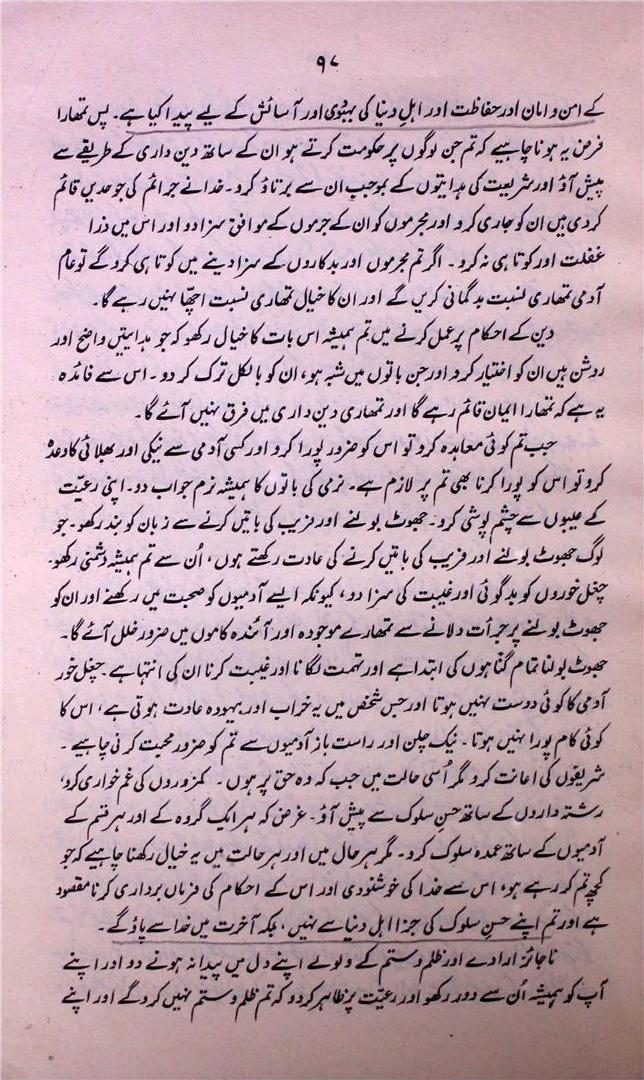 ۹۷
کے امن و امان اور حفاظت اور اہلِ دنیا کی بہبودی اور آسائش کے لیے پیدا کیا ہے۔ پس تمھارا
فرض یہ ہونا چاہیے کہ تم جن لوگوں پر حکومت کرتے ہو ان کے ساتھ دین داری کے طریقے سے
پیش آؤ اور شریعت کی ہدایتوں کے بموجب ان سے برتاؤ کرو۔ خدا نے جرائم کی جو حدیں قائم
کر دی ہیں ان کو جاری کرو اور مجرموں کو ان کے جرموں کے موافق سزا دو اور اس میں ذرا
غفلت اور کوتاہی نہ کرو۔ اگر تم مجرموں اور بدکاروں کے سزا دینے میں کوتاہی کرو گے تو عام
آدمی تمھاری نسبت بدگمانی کریں گے اور ان کا خیال تمھاری نسبت اچھا نہیں رہے گا۔
دین کے احکام پر عمل کرنے میں تم ہمیشہ اس بات کا خیال رکھو کہ جو ہدایتیں واضح اور
روشن ہیں ان کو اختیار کرو اور جن باتوں میں شبہ ہو، ان کو بالکل ترک کر دو۔ اس سے فائدہ
یہ ہے کہ تمھارا ایمان قائم رہے گا اور تمھاری دین داری میں فرق نہیں آئے گا۔
جب تم کوئی معاہدہ کرو تو اس کو ضرور پورا کرو اور کسی آدمی سے نیکی اور بھلائی کا وعدہ
کرو تو اس کو پورا کرنا بھی تم پر لازم ہے۔ نرمی کی باتوں کا ہمیشہ نرم جواب دو۔ اپنی رعیّت
کے عیبوں سے چشم پوشی کرو۔ جھوٹ بولنے اور فریب کی باتیں کرنے سے زبان کو بند رکھو۔ جو
لوگ جھوٹ بولنے اور فریب کی باتیں کرنے کی عادت رکھتے ہوں، اُن سے تم ہمیشہ دشمنی رکھو۔
چغل خوروں کو بدگوئی اور غیبت کی سزا دو، کیونکہ ایسے آدمیوں کو صحبت میں رکھنے اور ان کو
جھوٹ بولنے پر جرأت دلانے سے تمھارے موجودہ اور آئندہ کاموں میں ضرور خلل آئے گا۔
جھوٹ بولنا تمام گناہوں کی ابتدا ہے اور تہمت لگانا اور غیبت کرنا ان کی انتہا ہے۔ چغل خور
آدمی کا کوئی دوست نہیں ہوتا اور جس شخص میں یہ خراب اور بیہودہ عادت ہوتی ہے، اس کا
کوئی کام پورا نہیں ہوتا۔ نیک چلن اور راست باز آدمیوں سے تم کو ضرور محبت کرنی چاہیے۔
شریفوں کی اعانت کرو مگر اُسی حالت میں جب کہ وہ حق پر ہوں۔ کمزوروں کی غم خواری کرو،
رشتہ داروں کے ساتھ حسنِ سلوک سے پیش آؤ۔ غرض کہ ہر ایک گروہ کے اور ہر قسم کے
آدمیوں کے ساتھ عمدہ سلوک کرو۔ مگر ہر حال میں اور ہر حالت میں یہ خیال رکھنا چاہیے کہ جو
کچھ تم کر رہے ہو، اس سے خدا کی خوشنودی اور اس کے احکام کی فرماں برداری کرنا مقصود
ہے اور تم اپنے حسنِ سلوک کی جزا اہلِ دنیا سے نہیں، بلکہ آخرت میں خدا سے پاؤ گے۔
ناجائز ارادے اور ظلم و ستم کے ولولے اپنے دل میں پیدا نہ ہونے دو اور اپنے
آپ کو ہمیشہ اُن سے دور رکھو اور رعیّت پر ظاہر کر دو کہ تم ظلم و ستم نہیں کرو گے اور اپنے